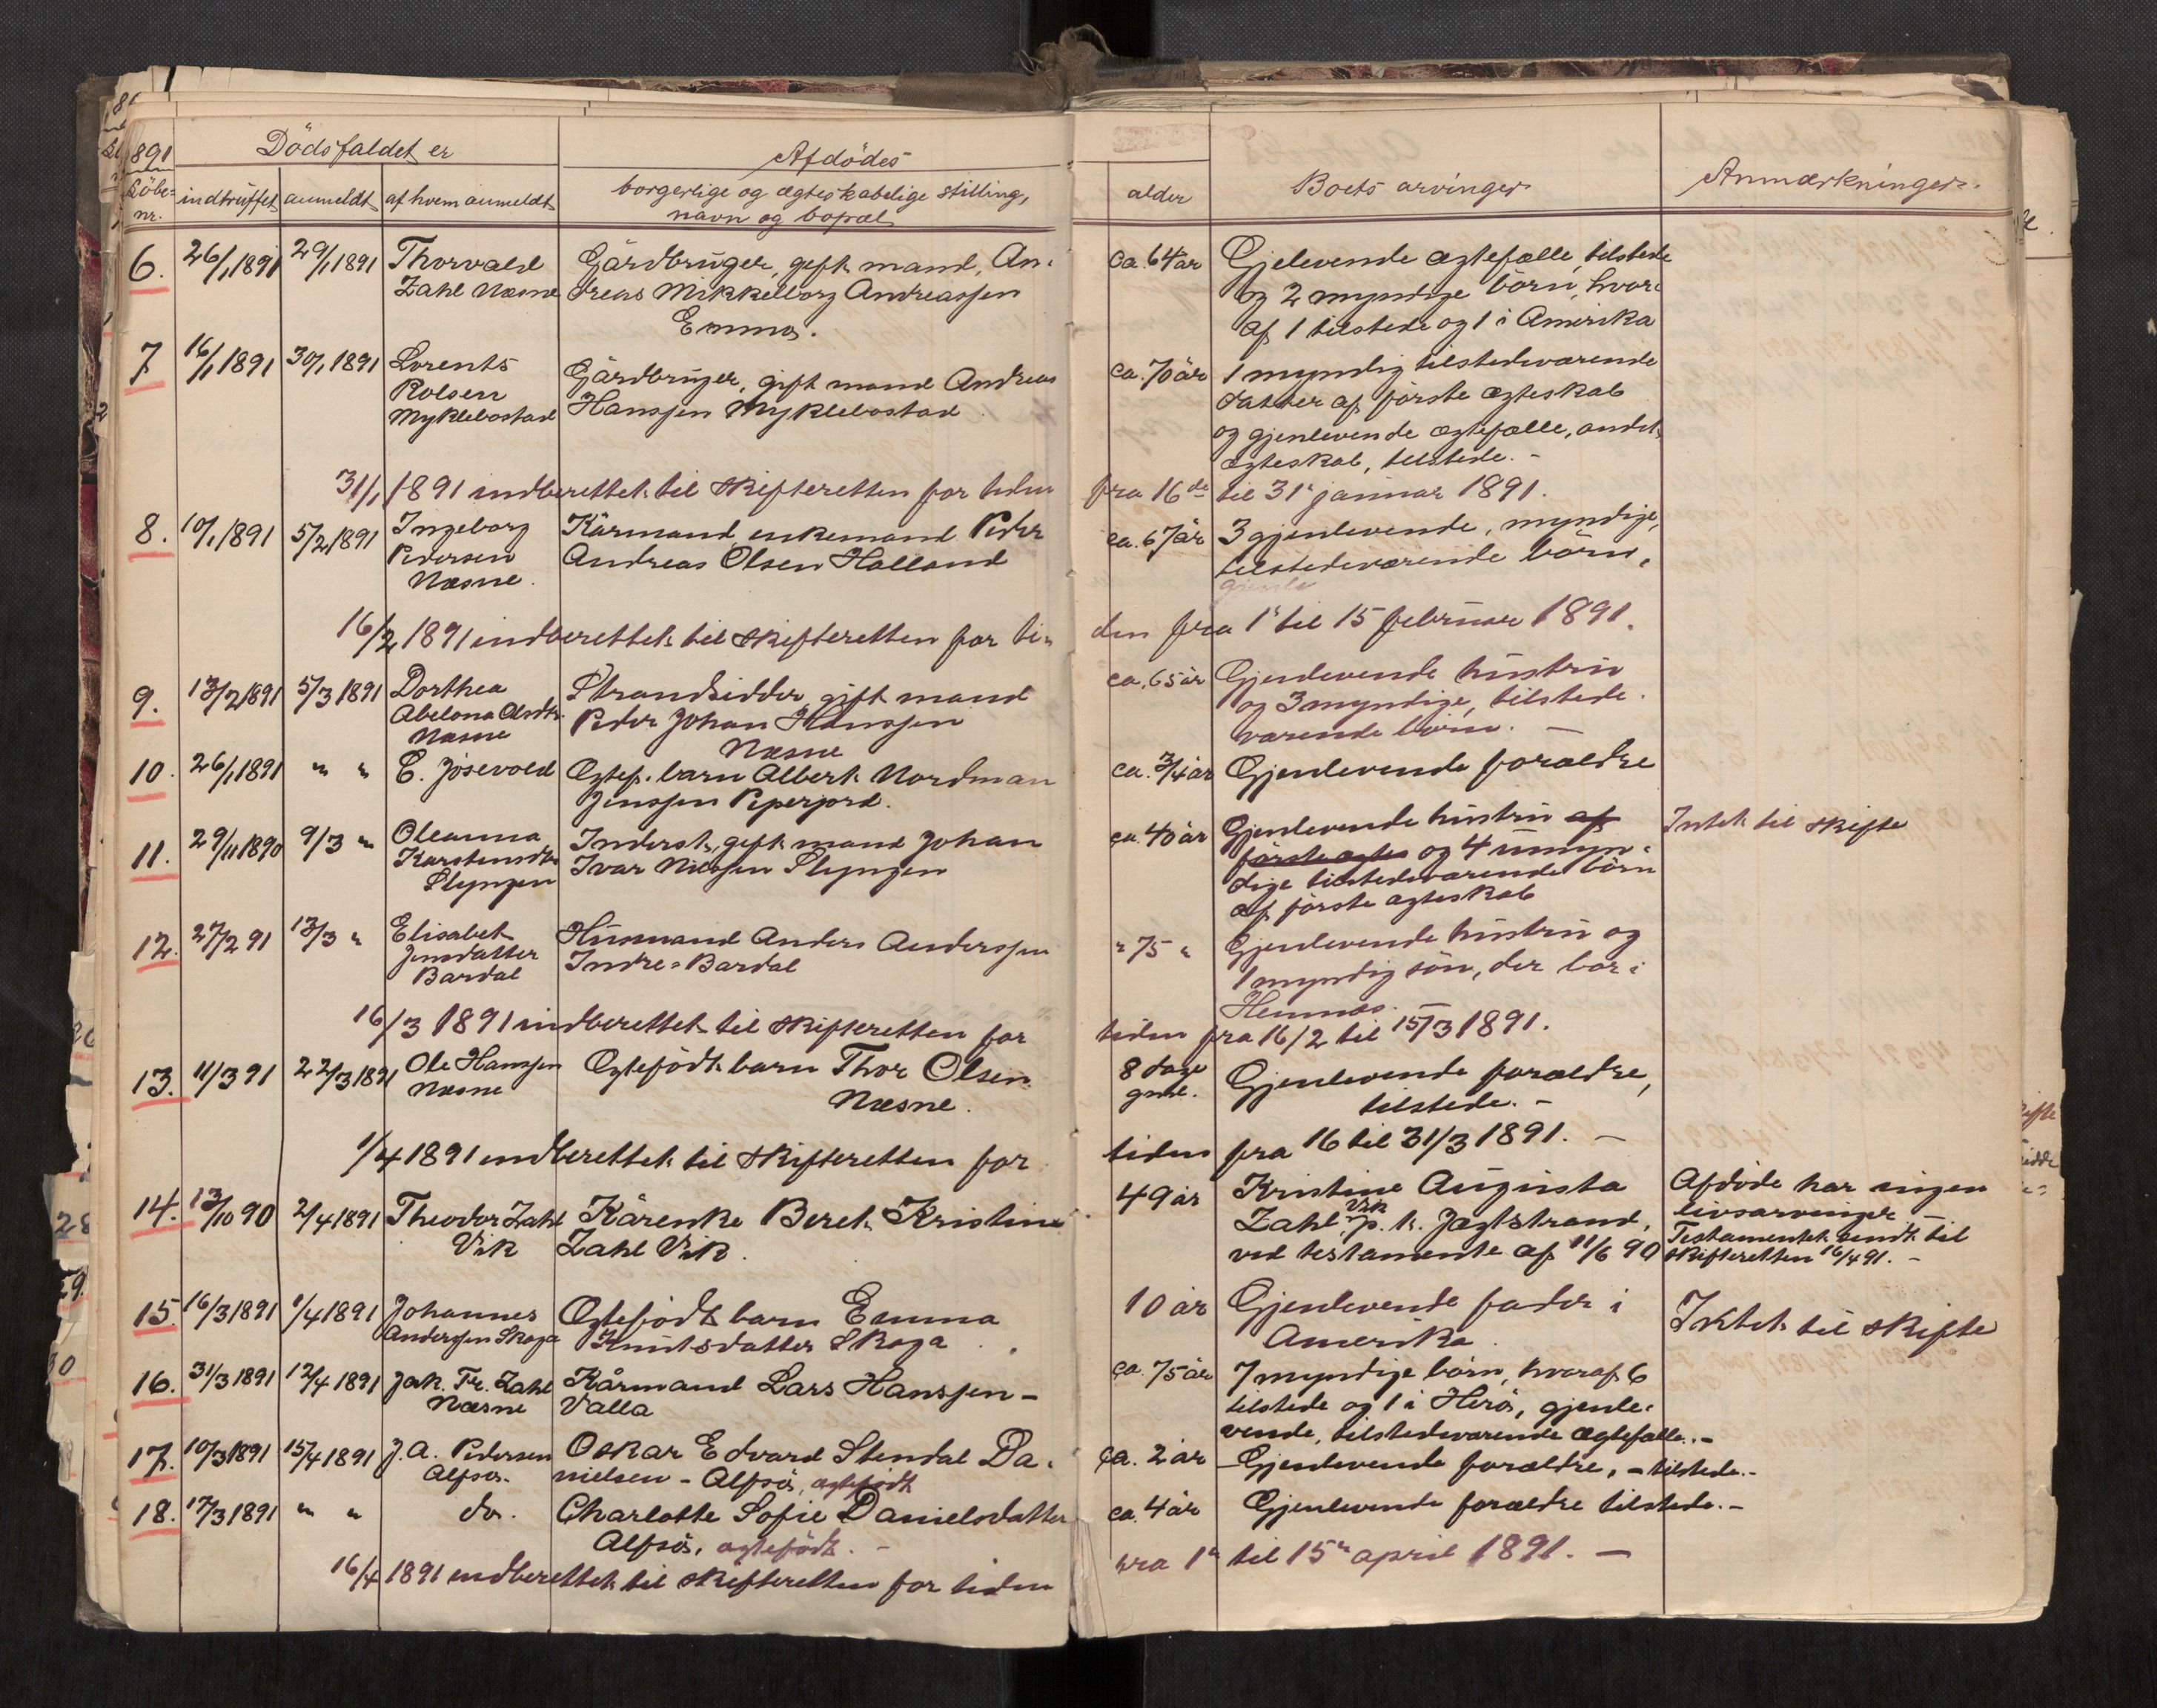 1891
Dödsfaldet er
Afdödes
Löbe-
nr.
indtruffet
anmeldt
af hvem anmeldt
borgerlige og ægteskabelige stilling,
navn og bopæl
alder
Boets arvinger
Anmærkninger.
6.
26/1 1891
29/1 1891
Thorvald
Zahl Næsne
Gårdbruger, gift mand, An-
dreas Mikkelborg Andreassen
ca. 64 år
Gjelevende ægtefælle, tilstede
og 2 myndige börn, hvor-
af 1 tilstede og 1 i Amerika
7
16/1 1891
30/1 1891
Lorents
Rolsen
Myklebostad
Gårdbruger, gift mand Andreas
Hanssen Myklebostad
ca. 70 år
1 myndig tilstedeværende
datter af förste ægteskab
og gjenlevende ægtefælle, andet
ægteskab, tilstede. -
31/1 1891 indberettet til skifteretten for tiden fra 16de til 31' januar 1891.
8.
10/1 1891
5/2 1891
Ingeborg
Pedersen
Næsne.
Kårmand, enkemand Peder
Andreas Olsen Halland
ca. 67 år
3 gjenlevende, myndige,
tilstedeværende börn.
gjenle
16/2 1891 indberettet til skifteretten for ti- den fra 1' til 15 februar 1891.
9.
13/2 1891
5/3 1891
Dorthea
Abelona Olsdtr.
Næsne
Strandsidder, gift mand
Peder Johan Hanssen
Næsne
ca. 65 år
Gjenlevende hustru
og 3 myndige, tilstede-
værende börn. -
10.
26/1 1891
" "
C. Jösevold
Ægtef. barn Albert Nordman
Jenssen Peperjord.
ca. 3/4 år
Gjenlevende forældre
11.
29/11 1890
9/3 "
Oleanna
Karstensdtr
Slyngen
Inderst, gift mand Johan
Ivar Nilssen Slyngen
ca. 40 år
Gjenlevende hustru af
förste ægtes og 4 umyn-
dige tilstedeværende börn
af förste ægteskab
Intet til skifte
12.
27/2 91
13/3 "
Elisabet
Jensdatter
Bardal
Husmand Anders Anderssen
Indre-Bardal
" 75 "
Gjenlevende hustru og
1 myndig sön, der bor i
Hemnæs.
16/3 1891 indberettet til skifteretten for tiden fra 16/2 til 15/3 1891.
13.
11/3 91
22/3 1891
Ole Hanssen
Næsne
Ægtefödt barn Thor Olsen
Næsne.
8 dage
gml.
Gjenlevende forældre,
tilstede. -
1/4 1891 indberettet til skifteretten for tiden fra 16 til 31/3 1891. -
14.
13/10 90
2/4 1891
Theodor Zahl
Vik
Kårenke Beret Kristine
Zahl Vik.
49 år
Kristine Augusta
Zahl, Vik p. t. Jægtstrand,
ved testamente af 11/6 90
Afdöde har ingen
livsarvinger
Testamentet sendt til
skifteretten 16/4 91. -
15.
16/3 1891
1/4 1891
Johannes
Anderssen Skaga
Ægtefödt barn Emma
Knutsdatter Skaga
10 år
Gjenlevende fader i
Amerika.
Intet til skifte
16.
31/3 1891
12/4 1891
Jak. Fr. Zahl
Næsne
Kårmand Lars Hanssen -
Valla
ca. 75 år
7 myndige börn, hvoraf 6
tilstede og 1 i Herö, gjenle-
vende, tilstedeværende ægtefælle. -
17.
10/3 1891
15/4 1891
J. A. Pedersen
Alfsö.
Oskar Edvard Stendal Da-
nielsen - Alfsö, ægtefödt
ca. 2 år
Gjenlevende forældre, - tilstede. -
18.
17/3 1891
" "
do.
Charlotte Sofie Danielsdatter
Alfsö, ægtefödt. -
ca. 4 år
Gjenlevende forældre tilstede. -
16/4 1891 indberettet til skifteretten for tiden fra 1' til 15' april 1891. -